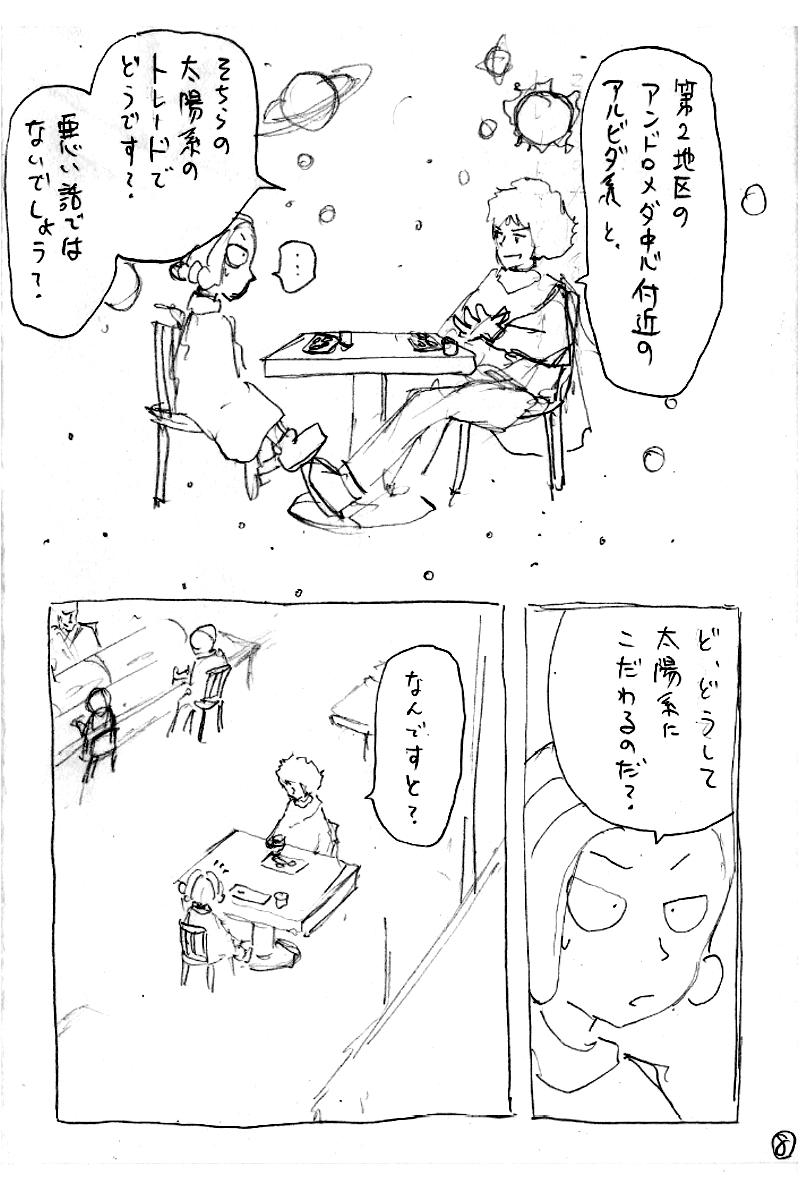 第2地区の
アンドロメダ中心付近の
アルビダ系と、
そちらの
太陽系の
トレードで
どうです？
悪い話では
ないでしょう？
…
ど、どうして
太陽系に
こだわるのだ？
なんですと？
8